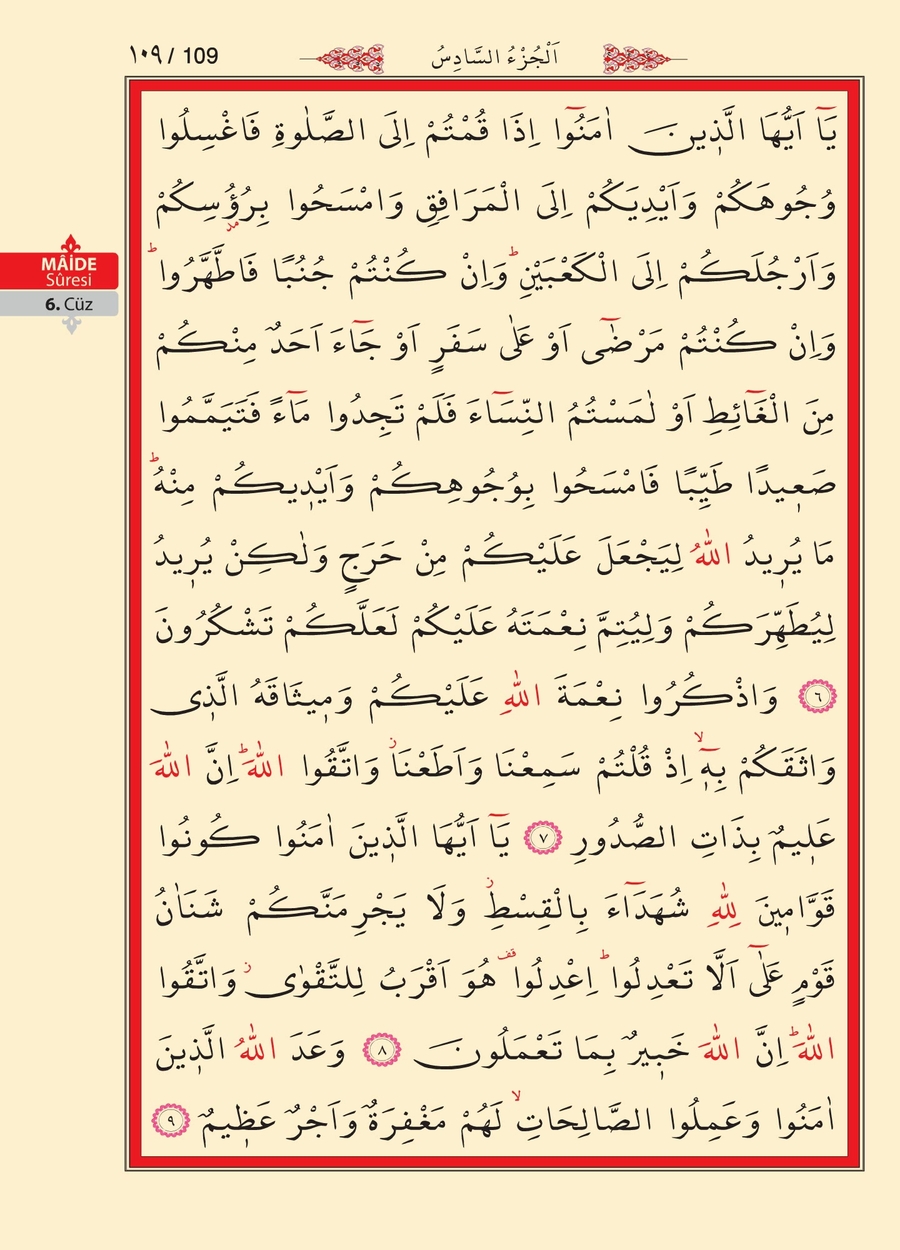 ١٠٩ / 109
اَلْجُزْءُ السَّادِسُ
MÂİDE
Sûresi
6. Cüz
يَٓا اَيُّهَا الَّذ۪ينَ اٰمَنُٓوا اِذَا قُمْتُمْ اِلَى الصَّلٰوةِ فَاغْسِلُوا
وُجُوهَكُمْ وَاَيْدِيَكُمْ اِلَى الْمَرَافِقِ وَامْسَحُوا بِرُؤُ۫سِكُمْ
وَاَرْجُلَكُمْ اِلَى الْكَعْبَيْنِۜ وَاِنْ كُنْتُمْ جُنُبًا فَاطَّهَّرُواۜ
وَاِنْ كُنْتُمْ مَرْضٰٓى اَوْ عَلٰى سَفَرٍ اَوْ جَٓاءَ اَحَدٌ مِنْكُمْ
مِنَ الْغَٓائِطِ اَوْ لٰمَسْتُمُ النِّسَٓاءَ فَلَمْ تَجِدُوا مَٓاءً فَتَيَمَّمُوا
صَع۪يدًا طَيِّبًا فَامْسَحُوا بِوُجُوهِكُمْ وَاَيْد۪يكُمْ مِنْهُۜ
مَا يُر۪يدُ اللّٰهُ لِيَجْعَلَ عَلَيْكُمْ مِنْ حَرَجٍ وَلٰكِنْ يُر۪يدُ
لِيُطَهِّرَكُمْ وَلِيُتِمَّ نِعْمَتَهُ عَلَيْكُمْ لَعَلَّكُمْ تَشْكُرُونَ
٦ وَاذْكُرُوا نِعْمَةَ اللّٰهِ عَلَيْكُمْ وَم۪يثَاقَهُ الَّذ۪ى
وَاثَقَكُمْ بِه۪ٓۙ اِذْ قُلْتُمْ سَمِعْنَا وَاَطَعْنَاۘ وَاتَّقُوا اللّٰهَۜ اِنَّ اللّٰهَ
عَل۪يمٌ بِذَاتِ الصُّدُورِ ٧ يَٓا اَيُّهَا الَّذ۪ينَ اٰمَنُوا كُونُوا
قَوَّام۪ينَ لِلّٰهِ شُهَدَٓاءَ بِالْقِسْطِۘ وَلَا يَجْرِمَنَّكُمْ شَنَاٰنُ
قَوْمٍ عَلٰٓى اَلَّا تَعْدِلُواۜ اِعْدِلُوا۠ هُوَ اَقْرَبُ لِلتَّقْوٰىۘ وَاتَّقُوا
اللّٰهَۜ اِنَّ اللّٰهَ خَب۪يرٌ بِمَا تَعْمَلُونَ ٨ وَعَدَ اللّٰهُ الَّذ۪ينَ
اٰمَنُوا وَعَمِلُوا الصَّالِحَاتِۙ لَهُمْ مَغْفِرَةٌ وَاَجْرٌ عَظ۪يمٌ ٩